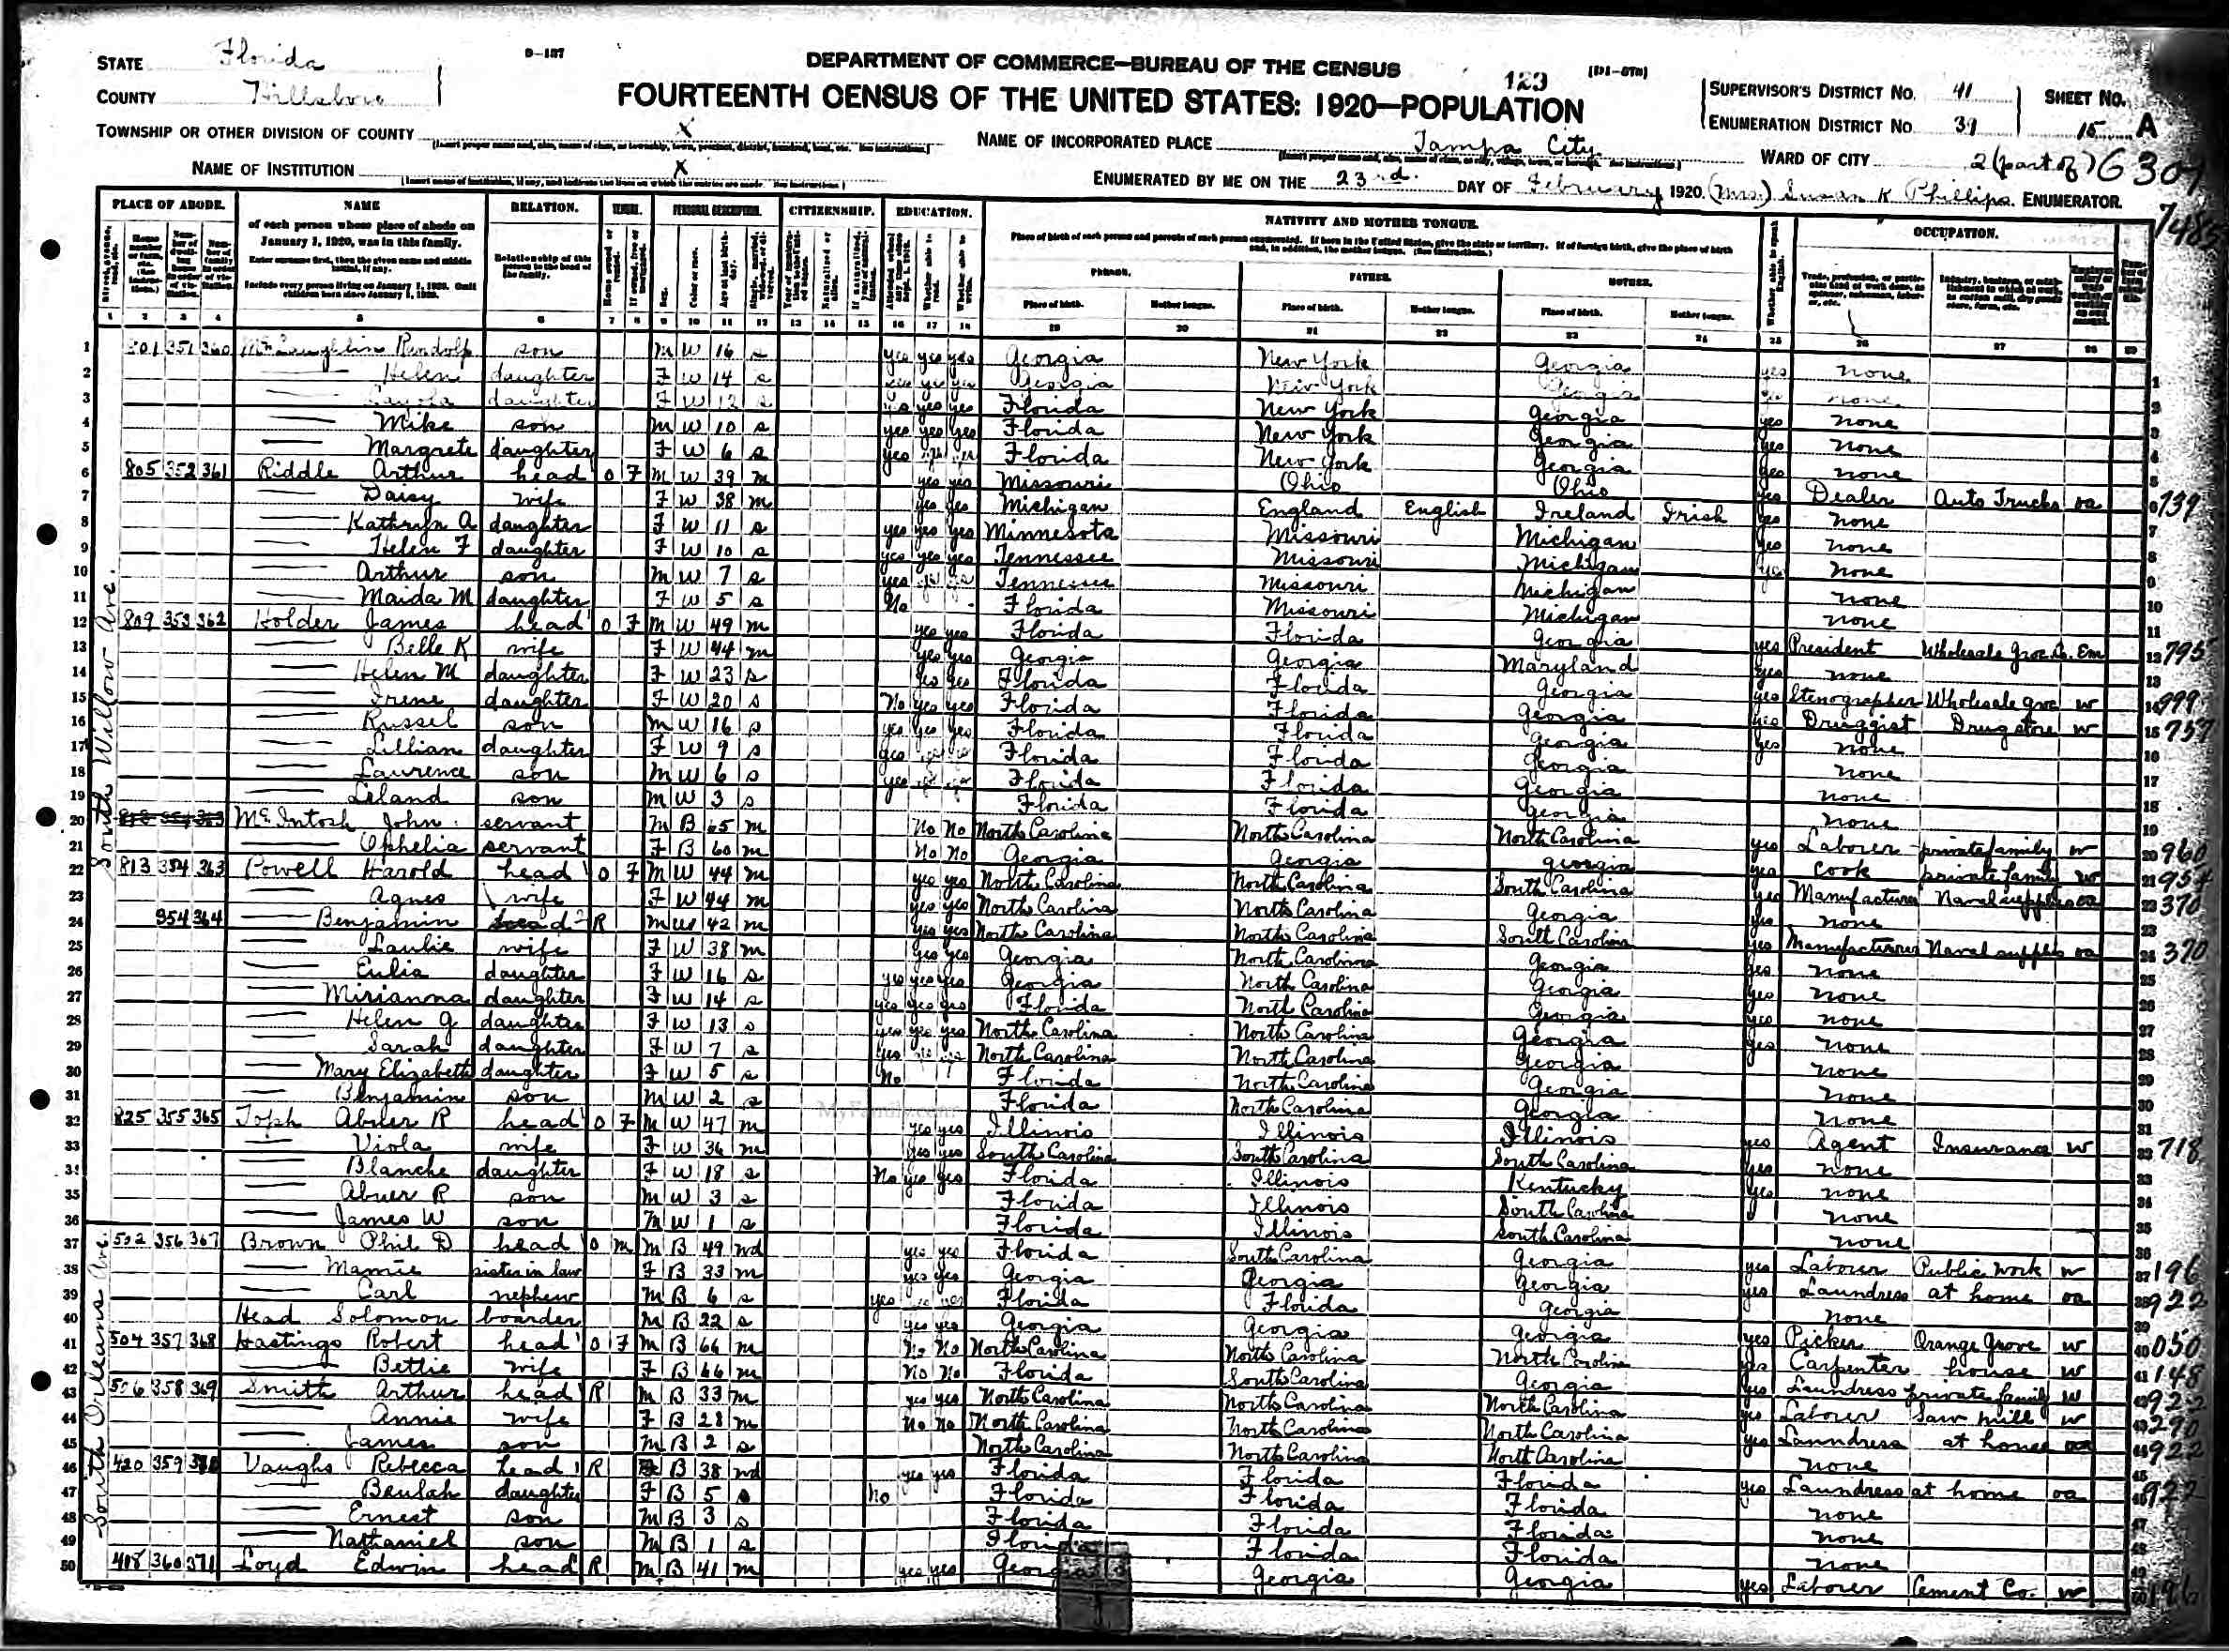 STATE Florida
D-137
DEPARTMENT OF COMMERCE—BUREAU OF THE CENSUS
123 [D1-578]
COUNTY Hillsboro
FOURTEENTH CENSUS OF THE UNITED STATES: 1920—POPULATION
SUPERVISOR'S DISTRICT No. 41 SHEET No.
ENUMERATION DISTRICT No. 39 15 A
TOWNSHIP OR OTHER DIVISION OF COUNTY X
NAME OF INCORPORATED PLACE Tampa City
WARD OF CITY 2 (part of) 76 307
NAME OF INSTITUTION X
ENUMERATED BY ME ON THE 23rd. DAY OF February 1920. (Mrs.) Susan K Phillips. ENUMERATOR.
7485
PLACE OF ABODE. NAME RELATION. TENURE. PERSONAL DESCRIPTION. CITIZENSHIP. EDUCATION. NATIVITY AND MOTHER TONGUE. OCCUPATION.
of each person whose place of abode on January 1, 1920, was in this family.
Enter surname first, then the given name and middle initial, if any.
Include every person living on January 1, 1920. Omit children born since January 1, 1920.
Relationship of this person to the head of the family.
Place of birth of each person and parents of each person enumerated. If born in the United States, give the state or territory. If of foreign birth, give the place of birth and, in addition, the mother tongue. (See instructions.)
PERSON. FATHER. MOTHER.
Place of birth. Mother tongue. Place of birth. Mother tongue. Place of birth. Mother tongue.
1 2 3 4 5 6 7 8 9 10 11 12 13 14 15 16 17 18 19 20 21 22 23 24 25 26 27 28 29
South Willow Ave.
1 801 351 360 McLaughlin Randolp son M W 16 s yes yes yes Georgia New York Georgia yes none
2 Helen daughter F W 14 s yes yes yes Georgia New York Georgia yes none
3 daughter F W 12 s yes yes yes Florida New York Georgia yes none
4 Mike son M W 10 s yes yes yes Florida New York Georgia yes none
5 Margrete daughter F W 6 s yes Florida New York Georgia yes none
6 805 352 361 Riddle Arthur head O F M W 39 m yes yes Missouri Ohio Ohio yes Dealer Auto Trucks oa 739
7 Daisy wife F W 38 m yes yes Michigan England English Ireland Irish yes none
8 Kathryn A daughter F W 11 s yes yes yes Minnesota Missouri Michigan yes none
9 Helen F daughter F W 10 s yes yes yes Tennessee Missouri Michigan yes none
10 Arthur son M W 7 s yes Tennessee Missouri Michigan none
11 Maida M daughter F W 5 s No Florida Missouri Michigan none
12 809 353 362 Holder James head O F M W 49 m yes yes Florida Florida Georgia yes President Wholesale Groc. Co. Em 795
13 Belle K wife F W 44 m yes yes Georgia Georgia Maryland yes none
14 Helen M daughter F W 23 s yes yes Florida Florida Georgia yes Stenographer Wholesale groc w 999
15 Irene daughter F W 20 s No yes yes Florida Florida Georgia yes Druggist Drug store w 757
16 Russel son M W 16 s yes yes yes Florida Florida Georgia yes none
17 Lillian daughter F W 9 s yes Florida Florida Georgia none
18 Laurence son M W 6 s yes Florida Florida Georgia none
19 Leland son M W 3 s Florida Florida Georgia none
20 McIntosh John servant M B 65 m No No North Carolina North Carolina North Carolina yes Laborer private family w 960
21 Ophelia servant F B 60 m No No Georgia Georgia Georgia yes Cook private family w 954
22 813 354 363 Powell Harold head O F M W 44 m yes yes North Carolina North Carolina South Carolina yes Manufacturer Naval supplies oa 370
23 Agnes wife F W 44 m yes yes North Carolina North Carolina Georgia yes none
24 354 364 Benjamin head 2 R M W 42 m yes yes North Carolina North Carolina South Carolina yes Manufacturer Naval supplies oa 370
25 Laulie wife F W 38 m yes yes Georgia North Carolina Georgia yes none
26 Eulia daughter F W 16 s yes yes yes Georgia North Carolina Georgia yes none
27 Mirianna daughter F W 14 s yes yes yes Florida North Carolina Georgia yes none
28 Helen G daughter F W 13 s yes yes yes North Carolina North Carolina Georgia yes none
29 Sarah daughter F W 7 s yes North Carolina North Carolina Georgia none
30 Mary Elizabeth daughter F W 5 s No Florida North Carolina Georgia none
31 Benjamin son M W 2 s Florida North Carolina Georgia none
32 825 355 365 Toph Abner R head O F M W 47 m yes yes Illinois Illinois Illinois yes Agent Insurance w 718
33 Viola wife F W 36 m yes yes South Carolina South Carolina South Carolina yes none
34 Blanche daughter F W 18 s No yes yes Florida Illinois Kentucky yes none
35 Abner R son M W 3 s Florida Illinois South Carolina none
36 James W son M W 1 s Florida Illinois South Carolina none
South Orleans Ave.
37 502 356 367 Brown Phil D head O M M B 49 wd yes yes Florida South Carolina Georgia yes Laborer Public work w 196
38 Mamie sister in law F B 33 m yes yes Georgia Georgia Georgia yes Laundress at home oa 922
39 Carl nephew M B 6 s yes Florida Florida Georgia none
40 Head Solomon boarder M B 22 s yes yes Georgia Georgia Georgia yes Picker Orange Grove w 050
41 504 357 368 Hastings Robert head O F M B 66 m No No North Carolina North Carolina North Carolina yes Carpenter house w 148
42 Bettie wife F B 66 m No No Florida South Carolina Georgia yes Laundress private family w 922
43 506 358 369 Smith Arthur head R M B 33 m yes yes North Carolina North Carolina North Carolina yes Laborer Saw mill w 290
44 Annie wife F B 28 m No No North Carolina North Carolina North Carolina yes Laundress at home oa 922
45 James son M B 2 s North Carolina North Carolina North Carolina none
46 420 359 370 Vaughs Rebecca head R F B 38 wd yes yes Florida Florida Florida yes Laundress at home oa 922
47 Beulah daughter F B 5 s No Florida Florida Florida none
48 Ernest son M B 3 s Florida Florida Florida none
49 Nathaniel son M B 1 s Florida Florida Florida none
50 418 360 371 Loyd Edwin head R M B 41 m yes yes Georgia Georgia Georgia yes Laborer Cement Co. w 196
MyFamily.com